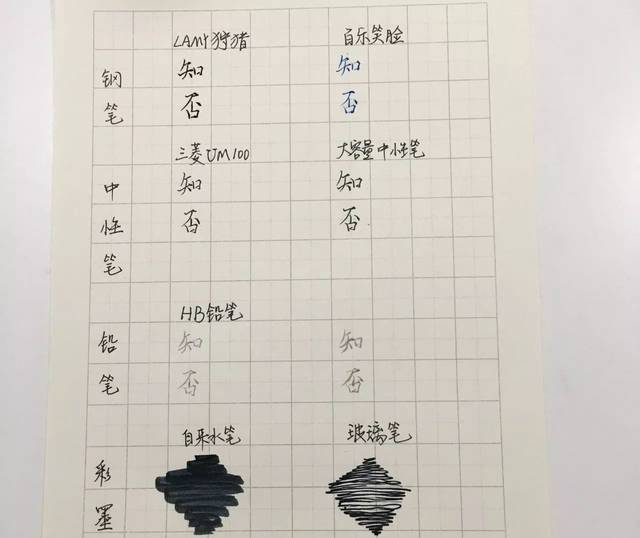 LAMY狩猎 百乐笑脸
钢 知 知
笔 否 否
三菱UM100 大容量中性笔
中 知 知
性 否 否
笔
HB铅笔
铅 知 知
笔 否 否
自来水笔 玻璃笔
彩
墨